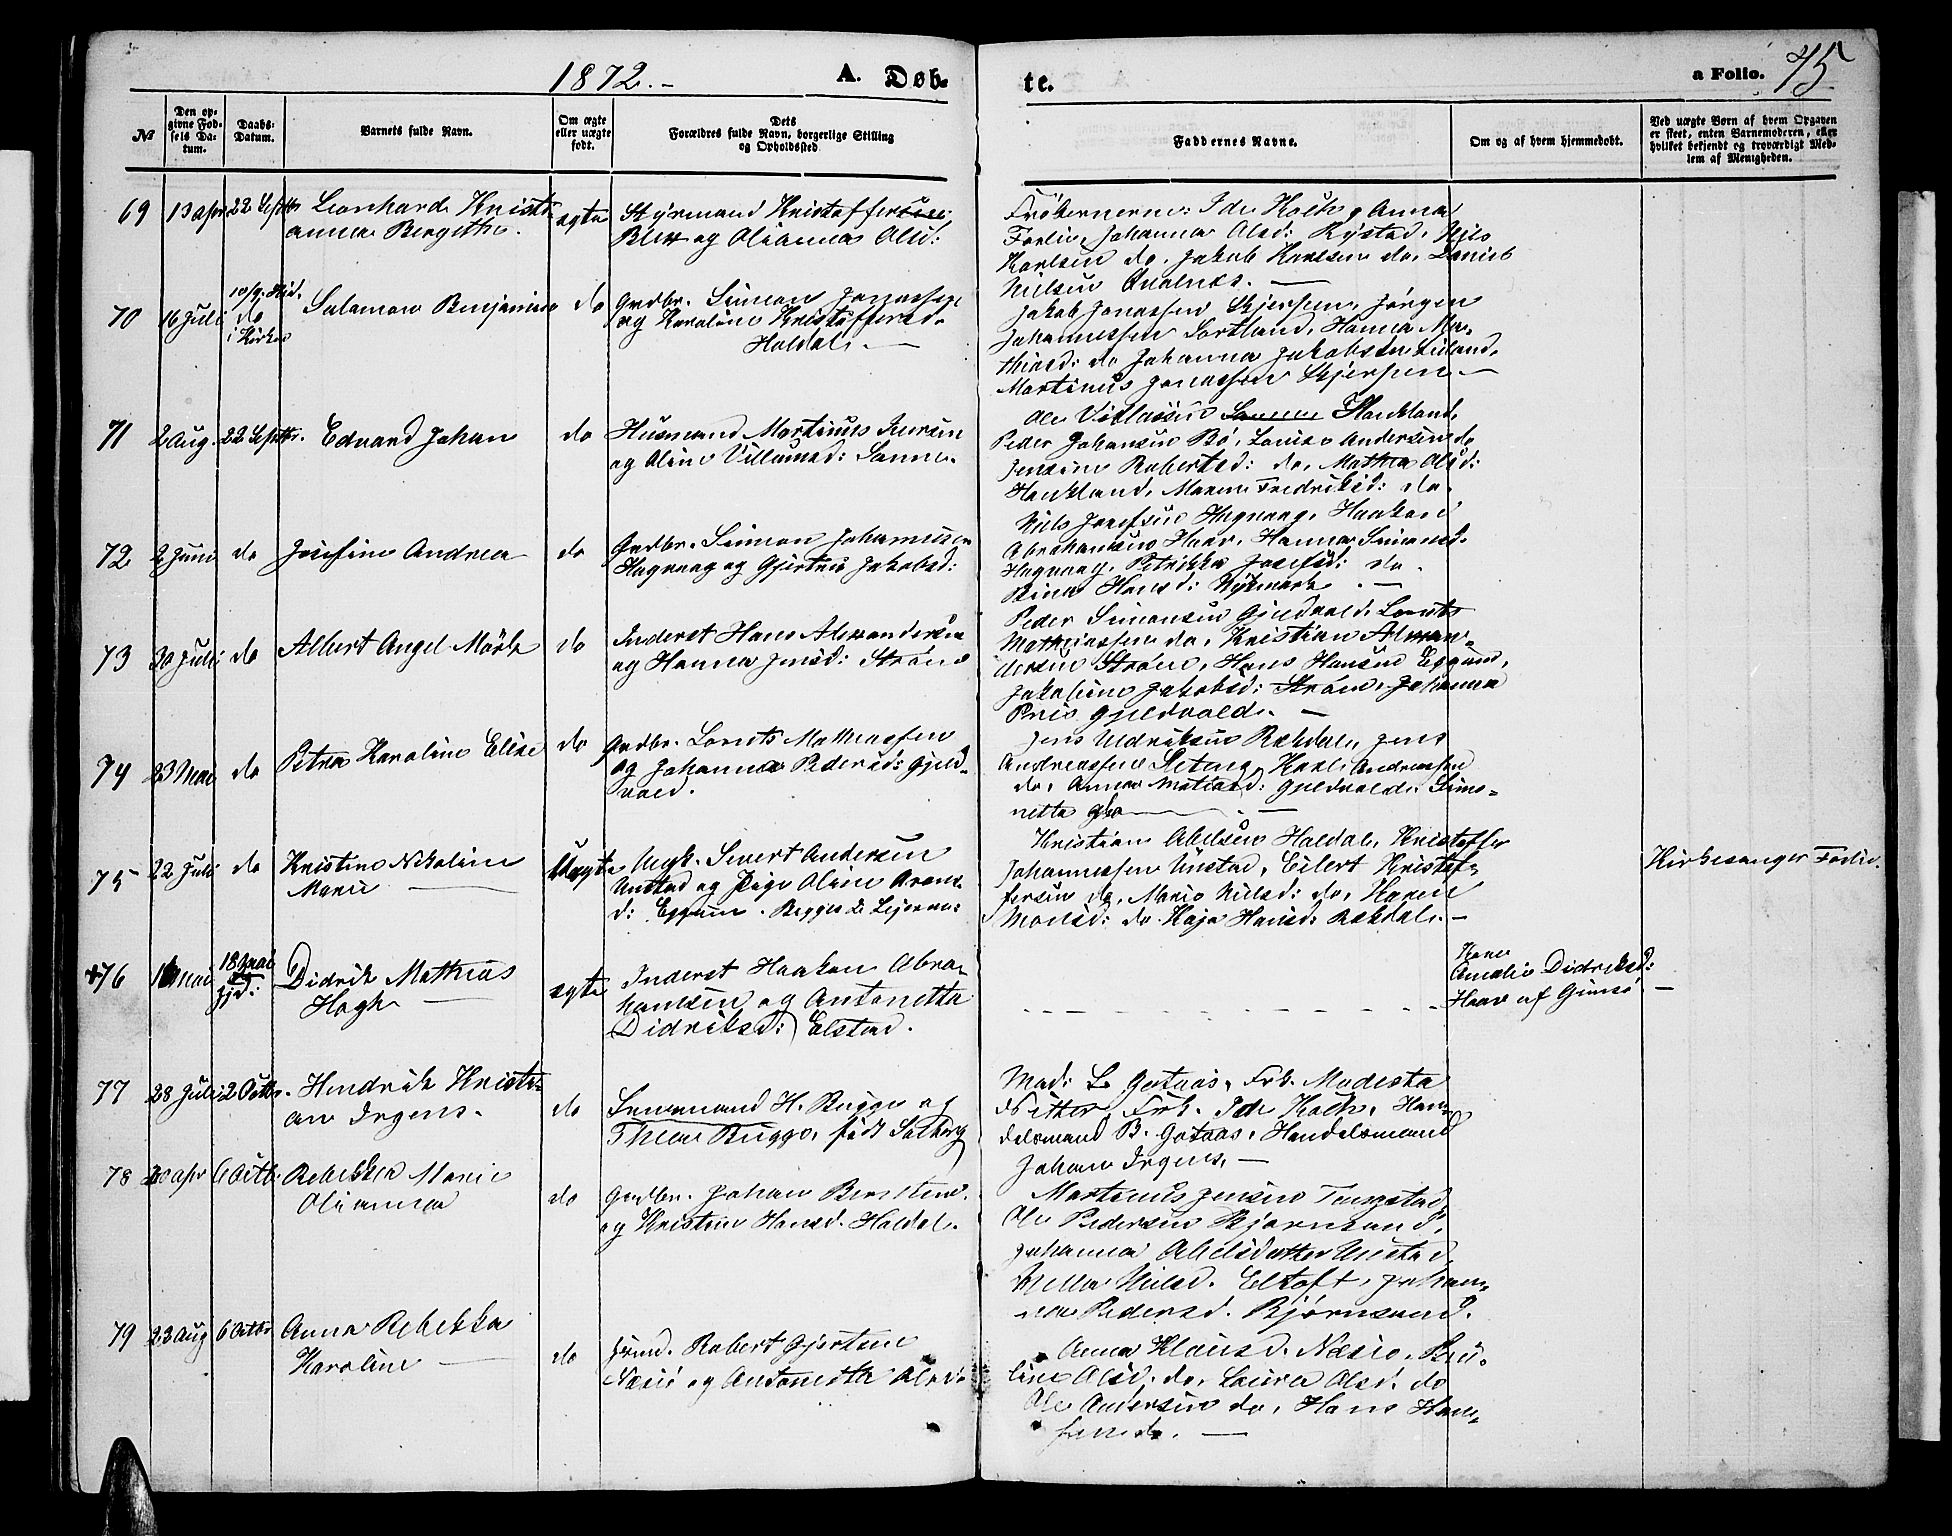 1872.-
A. Døb-
te.
a Folio. 75.
№
Den op-
givne Fød-
sels Da-
tum.
Daabs-
Datum.
Barnets fulde Navn.
Om ægte
eller uægte
født.
Dets
Forældres fulde Navn, borgerlige Stilling
og Opholdssted.
Faddernes Navne.
Om og af hvem hjemmedøbt.
Ved uægte Børn af hvem Opgaven
er skeet, enten Barnemoderen, eller
hvilket bekjendt og troværdigt Med-
lem af Menigheden.
69
13 Apr
22 Septbr
Leonharde Kristi-
anna Bergethe.
ægte
Styrmand Kristoffer
og Olianna Olsd:
Frøkernerne: Ida Koch, Anna
Forlie, Johanna Olsd: Rystad, Nils
Karlsen do, Jakob Karlsen do, Daniel
Nielsen Qvalnes. —
70
16 Juli
do
i Kirken
Salamon Benjamin
do
Grdbr. Simon Jonassen
og Karoline Kristoffersd.
Holdal. —
Jakob Jonassen Skjerpen, Jørgen
Johannessen Sortland, Hanna Ma-
thiasd: do Johanna Jakobsen Liland,
Martinus Jonassen Skjerpen —
71
2 Aug.
22 Septbr.
Edvard Johan
do
Husmand Martinus Iversen
og Oline Villumsd: Sanne.
Ole Haukland,
Peder Johansen Bø, Louise Andersen do
Jensine Robertsd: do, Mathea Olsd:
Haukland, Maren Fredriksd: do.
72
2 Juni
do
Josefine Andrea
do
Grdbr. Simon Johannesen
Hagvaag og Gjertrud Jakobsd:
Nils Josefsen Hagvaag, Haakon
Abrahamsen Haar, Hanna Simonsd.
Hagvaag, Petrikke Josefsd: do.
Hansd: Nykmark. —
73
30 Juli
do
Albert Angel Mørk
do
Inderst Hans Alexandersen
og Hanna Jensd: Strøm
Peder Simonsen Gjeldvold, Lorents
Mathiassen do, Kristian Alexan-
dersen Strøm, Hans Hansen Eggum,
Jakobine Jakobsd: Strøm, Johanna
Gjeldvold. —
74
23 Mai
do
Petra Karoline Elise
do
Grdbr. Lorents Mathiassen
og Johanna Pedersd: Gjeld-
vold.
Jens Uldriksen Rækdal, Jens
Andreassen Steteng, Karl Andreassen
do, Anna Matiasd: Gjeldvold, Simo-
netta do —
75
22 Juli
do
Kristine Nikoline
Marie —
Uægte
Ungk. Sivert Andersen
Unstad og Pige Oline Arons-
d: Eggum. Begges 2 Lejerm:
Kristian Abelsen Holdal, Kristoffer
Johannessen Unstad, Eilert Kristof-
fersen do, Marie Nielsd: do, Karen
do Kaja Hansd: Rækdal. —
Kirkesanger Forlie.
+76
Mai
18 Mai
Didrik Mathias
Hagh —
ægte
Inderst Haakon Abra-
hamsen og Antonetta
Didriksd: Elstad.
Kone
Amalie Didriksd:
Haar af Gimsø. —
77
28 Juli
2 Octbr.
Hendrik Kristi-
an Irgens.
do
Lensmand H. Bugge og
Thea Bugge, født Solberg
Mad: L. Gotaas, Frk. Modesta
Ditter, Frk. Ida Koch, Han-
delsmand B. Gotaas, Handelsmand
Johan Irgens. —
78
20 Apr
6 Octb.
Rebekka Marie
Olianna
do
Grdbr. Johan Berntsen
og Kristine Hansd. Holdal.
Martinus Jensen Tangstad,
Ole Pedersen Bjørnsand,
Johanna Abelsdatter Unstad,
Nielsd. Eltoft, Johan-
na Pedersd. Bjørnsand.
79
23 Aug
6 Octbr
Anna Rebekka
Karoline —
do
Robert Gjertsen
Næsie og Antonetta Olsd.
Anna Klausd. Næsie, Pau-
line Olsd. do, Laura Olsd. do
Ole Andersen do, Hans Han-
sen do. —